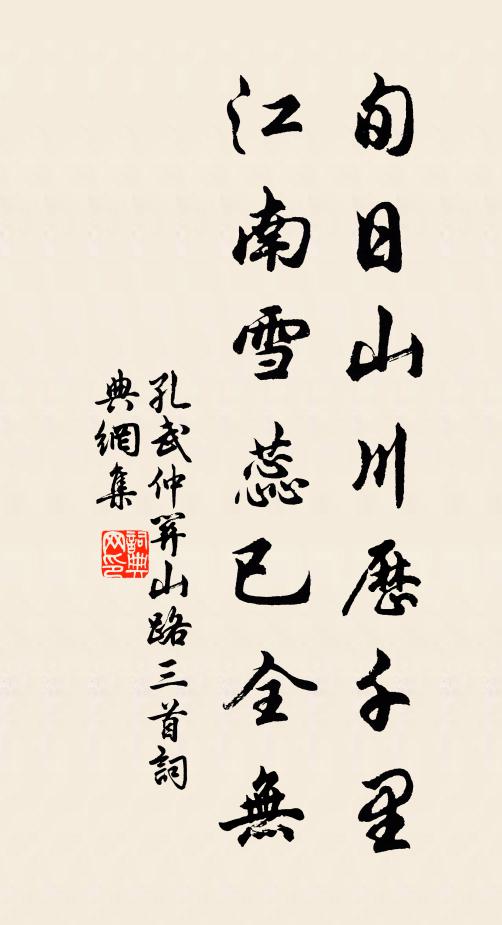 旬日山川歷千里
江南雪蕊已全無
孔武仲羿山路三首詞
典網集
詞典
网印